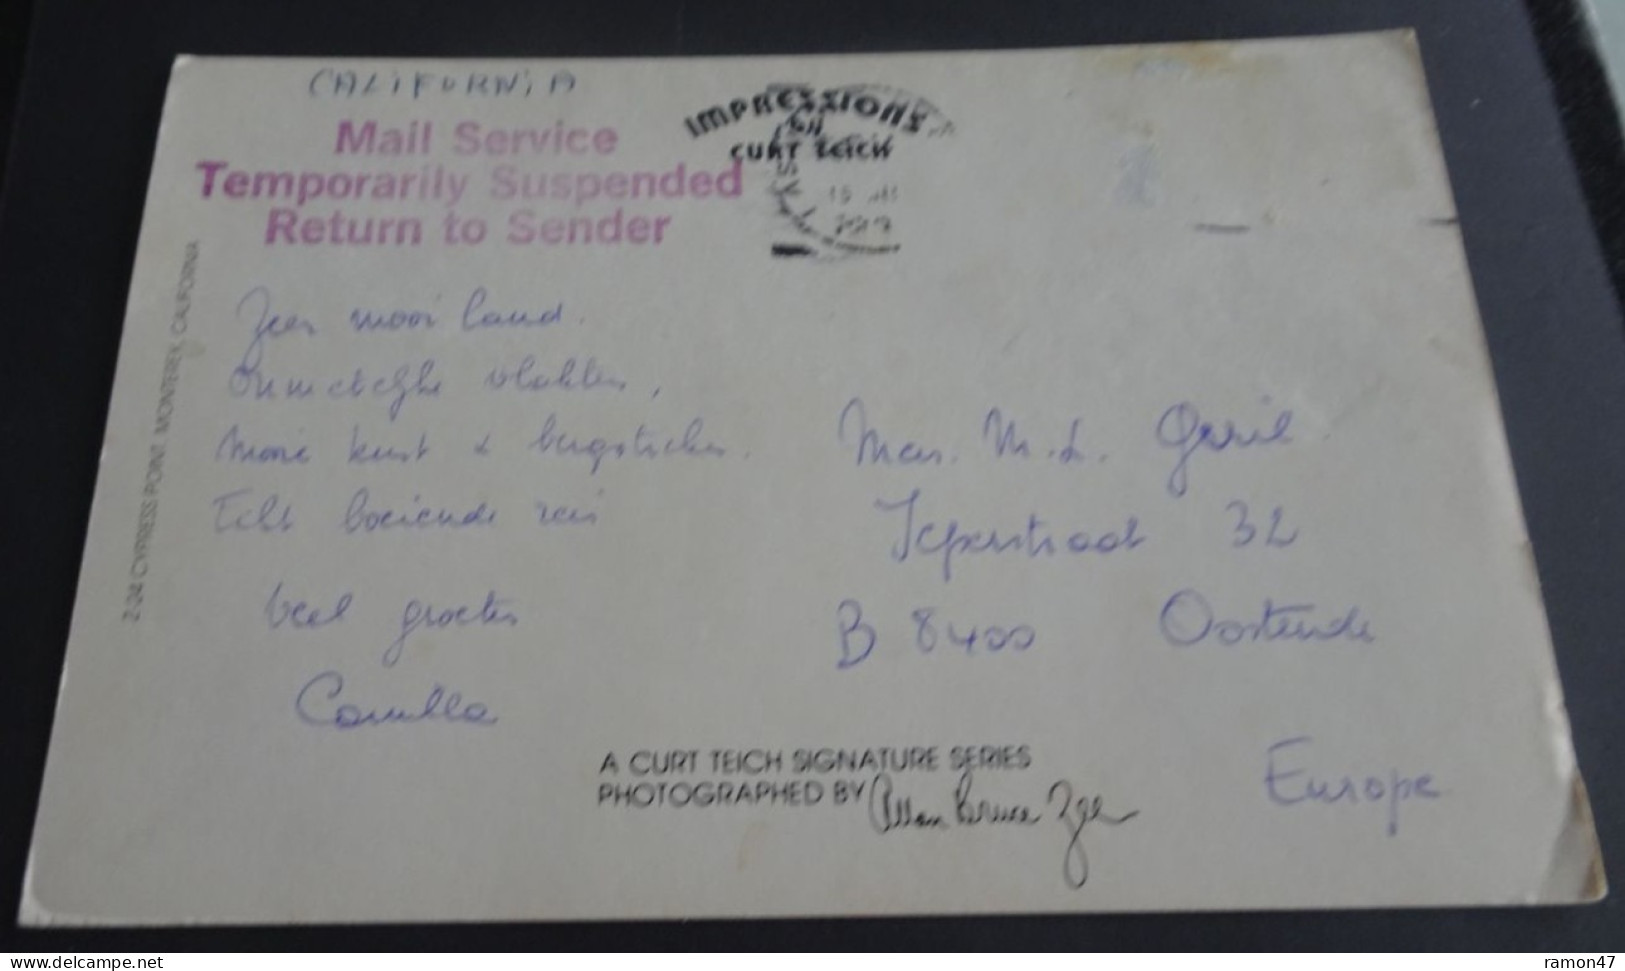 CALIFORNIA
Mail Service
Temporarily Suspended
Return to Sender
IMPRESSIONS
CURT TEICH
Z-24 CYPRESS POINT, MONTEREY, CALIFORNIA
Zeer mooi land.
Onmetelijke vlakten,
Mooie kust & bergstreken.
Echt boeiende reis
Veel groeten
Camilla
M. L.
Ieperstraat 32
B 8400 Oostende
Europe
A CURT TEICH SIGNATURE SERIES
PHOTOGRAPHED BY Allan Bruce
delcampe.net
ramon47